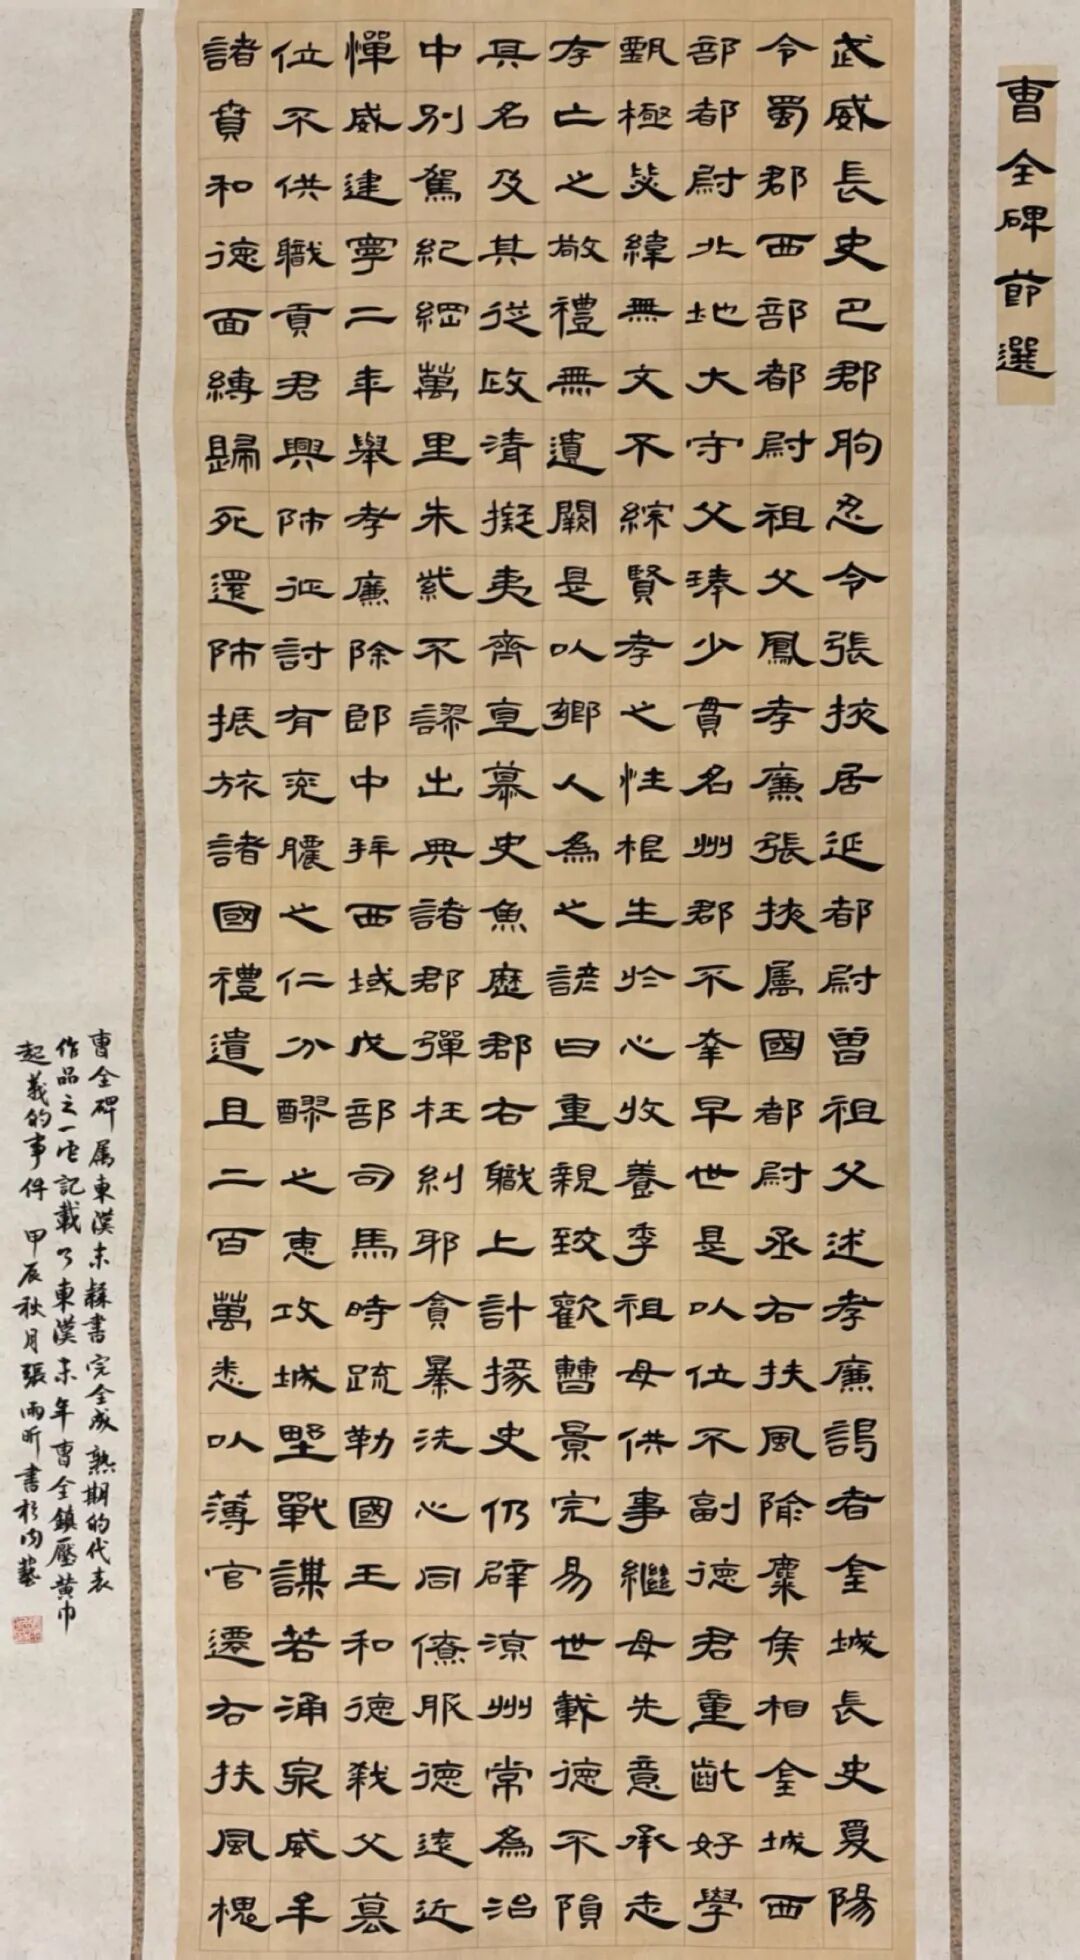 曹全碑節選
武威長史巴郡朐忍令張掖居延都尉曾祖父述孝廉謁者金城長史夏陽
令蜀郡西部都尉祖父鳳孝廉張掖屬國都尉丞右扶風隃麋侯相金城西
部都尉北地大守父琫少貫名州郡不幸早世是以位不副德君童齔好學
甄極毖緯無文不綜賢孝之性根生於心收養季祖母供事繼母先意承志
存亡之敬禮無遺闕是以鄉人為之諺曰重親致歡曹景完易世載德不隕
其名及其從政清擬夷齊直慕史魚歷郡右職上計掾史仍辟涼州常為治
中別駕紀綱萬里朱紫不謬出典諸郡彈枉糾邪貪暴洗心同僚服德遠近
憚威建寧二年舉孝廉除郎中拜西域戊部司馬時疏勒國王和德弒父篡
位不供職貢君興師征討有兗膿之仁分醪之惠攻城野戰謀若涌泉威牟
諸賁和德面縛歸死還師振旅諸國禮遺且二百萬悉以薄官遷右扶風槐
曹全碑属東漢末隸書完全成熟期的代表
作品之一它記載了東漢末年曹全鎮壓黄巾
起義的事件 甲辰秋月張雨昕書於藝